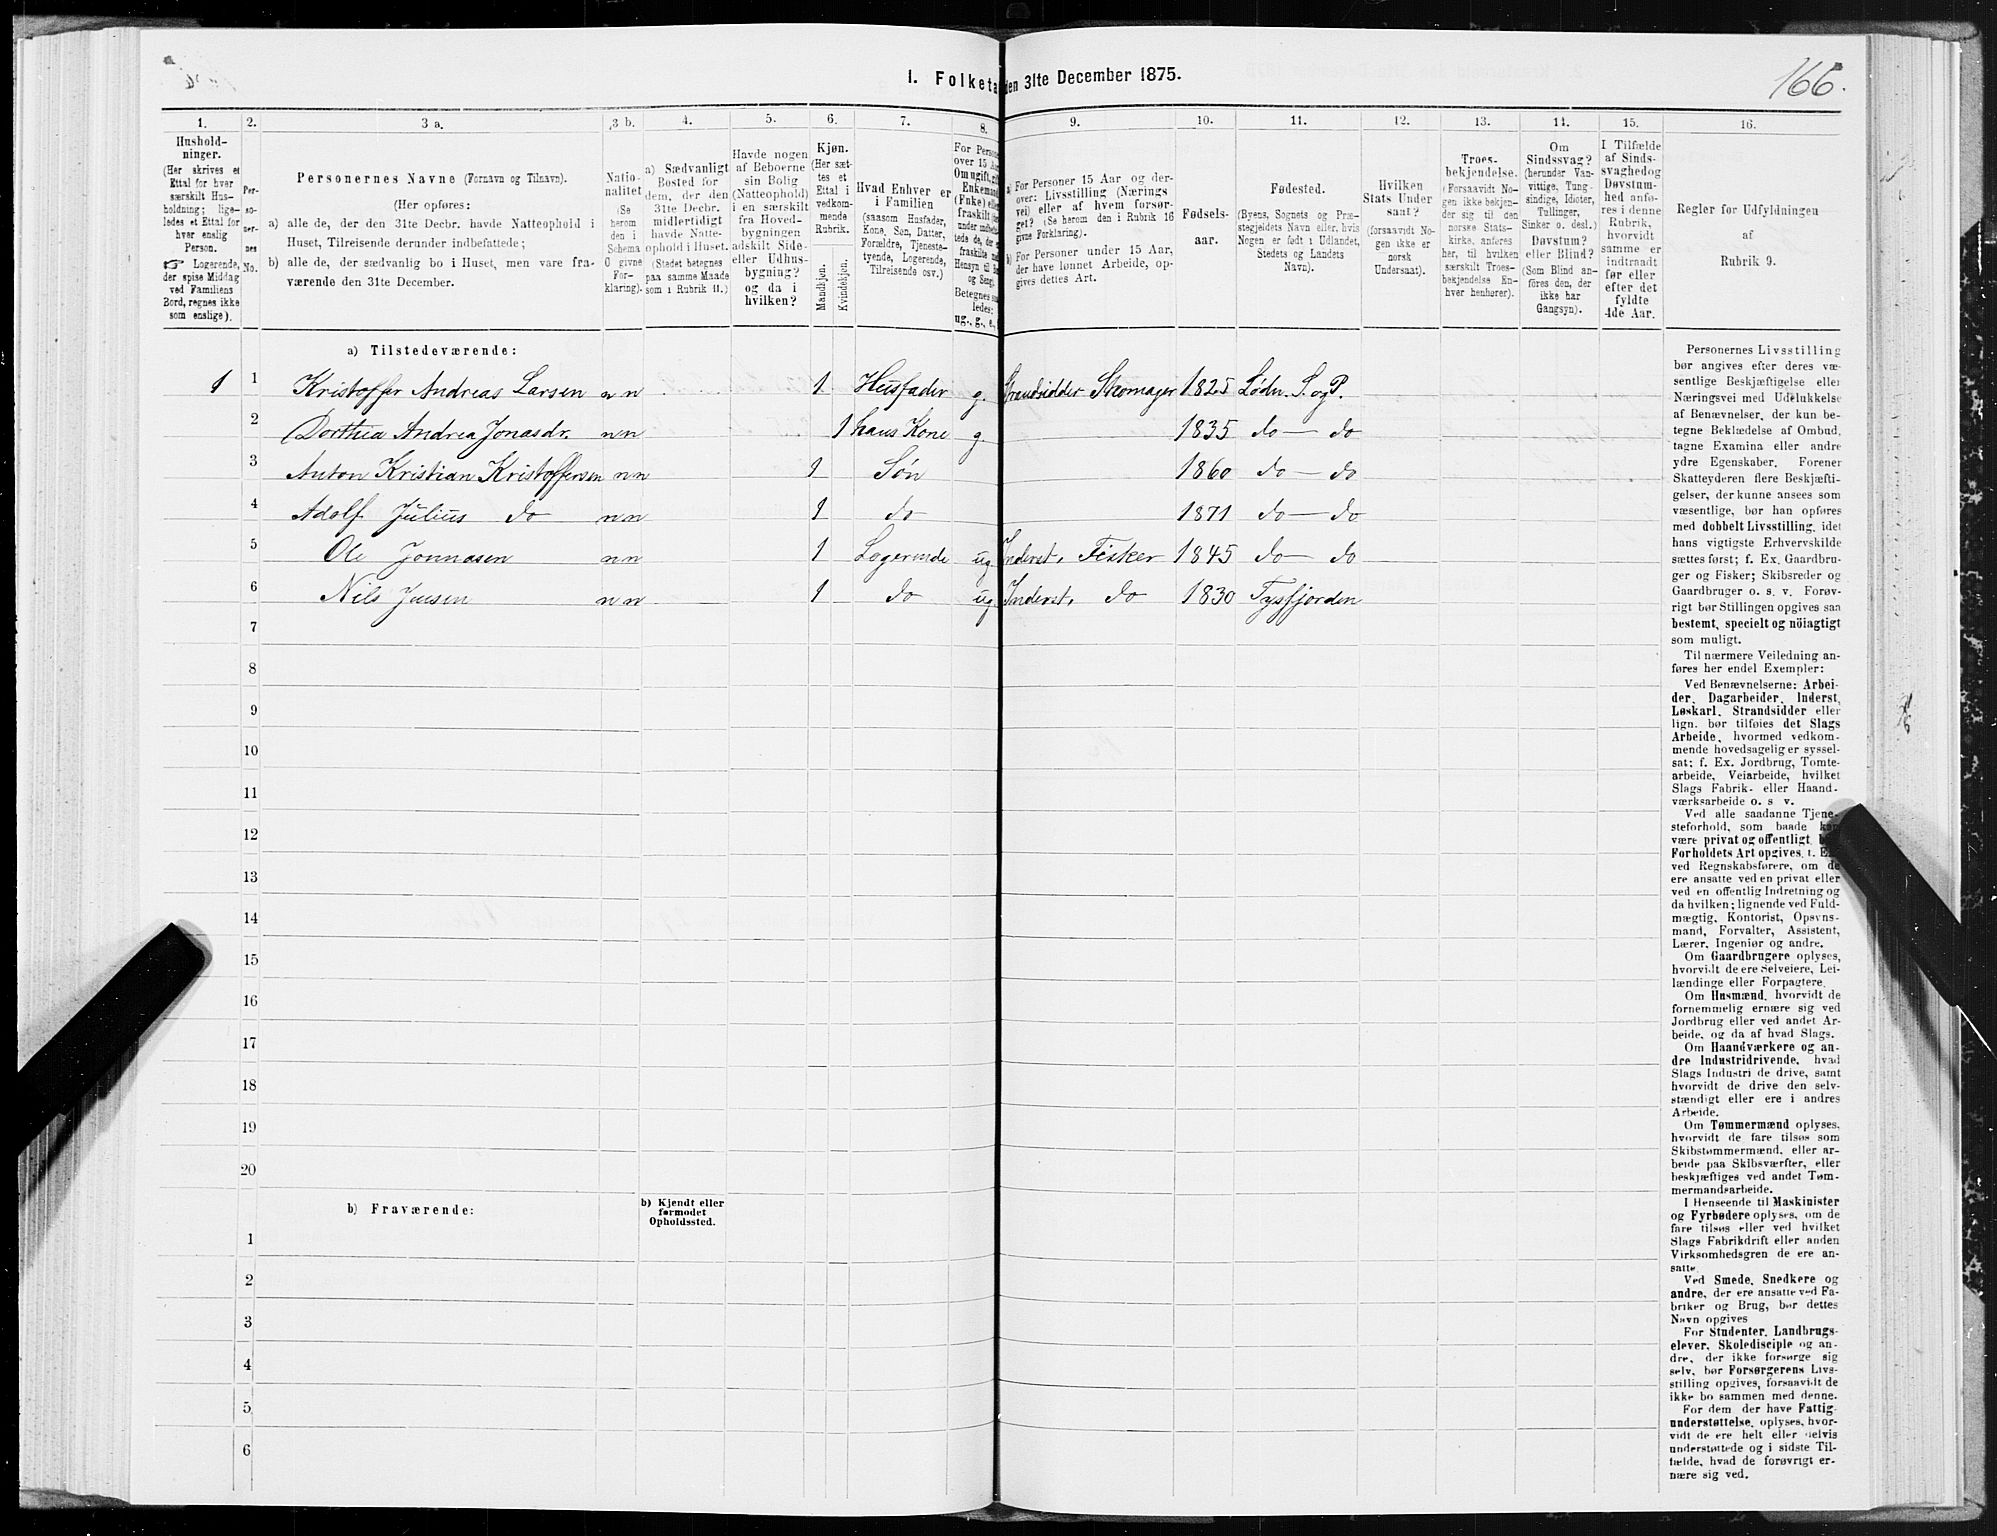 166.
1. Folketa den 31te December 1875.
1. 2. 3 a. 3 b. 4. 5. 6. 7. 8. 9. 10. 11. 12. 13. 14. 15. 16.
Hushold-
ninger.
(Her skrives et
Ettal for hver
særskilt Hus-
holdning; lige-
ledes et Ettal for
hver enslig
Person.
☞ Logerende,
der spise Middag
ved Familiens
Bord, regnes ikke
som enslige).
Per-
so-
ner-
nes
No.
Personernes Navne (Fornavn og Tilnavn).
(Her opføres:
a) alle de, der den 31te Decbr. havde Natteophold i
Huset, Tilreisende derunder indbefattede;
b) alle de, der sædvanlig bo i Huset, men vare fra-
værende den 31te December.
Natio-
nalitet
(Se
herom
den i
Schema
O givne
For-
klaring).
a) Sædvanligt
Bosted for
dem, der den
31te Decbr.
midlertidigt
havde Natte-
ophold i Huset.
(Stedet betegnes
paa samme Maade
som i Rubrik 11.)
Havde nogen
af Beboerne
sin Bolig
(Natteophold)
i en særskilt
fra Hoved-
bygningen
adskilt Side-
eller Udhus-
bygning?
og da i
hvilken?
Kjøn.
(Her sæt-
tes et
Ettal i
vedkom-
mende
Rubrik.
Mandkjøn.
Kvindekjøn.
Hvad Enhver er
i Familien
(saasom Husfader,
Kone, Søn, Datter,
Forældre, Tjeneste-
tyende, Logerende,
Tilreisende osv.)
For Person
over 15 Aa
Om ugift, gift
Enkemand
(Enke) elle
fraskilt
Betegnes saa
ledes:
ug., g., e.,
a) For Personer 15 Aar og der-
over: Livsstilling (Nærings
vei) eller af hvem forsør-
get? (Se herom den i Rubrik 16
givne Forklaring).
b) For Personer under 15 Aar,
der have lønnet Arbeide, op-
gives dettes Art.
Fødsels-
aar.
Fødested.
(Byens, Sognets og Præ-
stegjeldets Navn eller, hvis
Nogen er født i Udlandet,
Stedets og Landets
Navn).
Hvilken
Stats Under
saat?
(forsaavidt No-
gen ikke er
norsk
Undersaat).
Troes-
bekjendelse.
(Forsaavidt No-
gen ikke bekjen-
der sig til den
norske Stats-
kirke, anføres
her, til hvilken
særskilt Troes-
bekjendelse En-
hver henhører).
Om
Sindssvag?
(herunder Van-
vittige, Tung-
sindige, Idioter,
Tullinger,
Sinker o. desl.)
Døvstum?
eller Blind?
(Som Blind an-
føres den, der
ikke har
Gangsyn).
I Tilfælde
af Sinds-
svaghed og
Døvstum-
hed anfø-
res i denne
Rubrik,
hvorvidt
samme er
indtraadt
før eller
efter det
fyldte
4de Aar.
Regler for Udfyldningen
af
Rubrik 9.
a) Tilstedeværende:
1 1 Kristoffer Andreas Larsen nn 1 Husfader g. Strandsidder Skomager 1825 Lødn. S. og P.
2 Dorthea Andrea Jonasdr. nn 1 hans Kone g. 1835 do — do
3 Anton Kristian Kristoffersen nn 1 Søn 1860 do — do
4 Adolf Julius do nn 1 do 1871 do — do
5 Ole Jonnasen nn 1 Logerende ug. Inderst, Fisker 1845 do — do
6 Nils Jensen nn 1 do ug. Inderst, do 1830 Tysfjorden
7
8
9
10
11
12
13
14
15
16
17
18
19
20
b) Fraværende:
b) Kjendt eller
formodet
Opholdssted.
1
2
3
4
5
6
Personernes Livsstilling
bør angives efter deres væ-
sentlige Beskjæftigelse eller
Næringsvei med Udelukkelse
af Benævnelser, der kun be-
tegne Beklædelse af Ombud,
tagne Examina eller andre
ydre Egenskaber. Forener
Skatteyderen flere Beskjæfti-
gelser, der kunne ansees som
væsentlige, bør han opføres
med dobbelt Livsstilling, idet
hans vigtigste Erhvervskilde
sættes først; f. Ex. Gaardbru-
ger og Fisker; Skibsreder og
Gaardbruger o. s. v. Forøv-
rigt bør Stillingen opgives saa
bestemt, specielt og nöiagtigt
som muligt.
Til nærmere Veiledning an-
føres her endel Exempler:
Ved Benævnelserne: Arbei-
der, Dagarbeider, Inderst,
Løskarl, Strandsidder eller
lign. bør tilføies det Slags
Arbeide, hvormed vedkom-
mende hovedsagelig er syssel-
sat; f. Ex. Jordbrug, Tomte-
arbeide, Veiarbeide, hvilket
Slags Fabrik- eller Haand-
værksarbeide o. s v.
Ved alle saadanne Tjene-
steforhold, som baade
være privat og offentligt
Forholdets Art opgives,
ved Regnskabsførere, om de
ere ansatte ved en privat eller
ved en offentlig Indretning og
da hvilken; lignende ved Fuld-
mægtig, Kontorist, Opsyns-
mand, Forvalter, Assistent,
Lærer, Ingeniør og andre.
Om Gaardbrugere oplyses,
hvorvidt de ere Selveiere, Lei-
lændinge eller Forpagtere.
Om Husmænd, hvorvidt de
fornemmelig ernære sig ved
Jordbrug eller ved andet Ar-
beide, og da af hvad Slags.
Om Haandværkere og an-
dre Industridrivende, hvad
Slags Industri de drive, samt
hvorvidt de drive den selv-
stændigt eller ere i andres
Arbeide.
Om Tømmermænd oplyses,
hvorvidt de fare tilsøs som
Skibstømmermænd, eller ar-
beide paa Skibsværfter, eller
beskjæftiges ved andet Tøm-
mermandsarbeide.
I Henseende til Maskinister
og Fyrbødere oplyses, om de
fare tilsøs eller ved hvilket
Slags Fabrikdrift eller anden
Virksomhedsgren de ere an-
satte.
Ved Smede, Snedkere og
andre, der ere ansatte ved Fa-
briker og Brug, bør dettes
Navn opgives
For Studenter, Landbrugs-
elever, Skoledisciple og an-
dre, der ikke forsørge sig
selv, bør Forsørgerens Livs-
stilling opgives, forsaavidt de
ikke bo sammen med denne.
For dem der have Fattig-
understøttelse, oplyses, hvor-
vidt de ere helt eller delvis
understøttede og i sidste Til-
fælde, hvad de forøvrigt er-
nære sig ved.